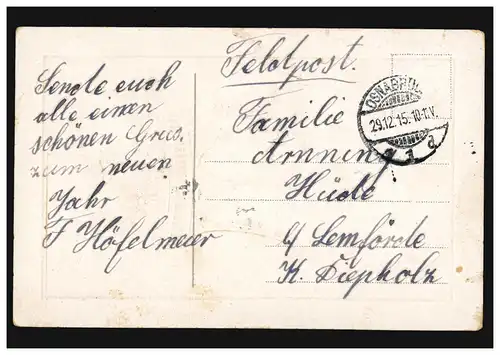 Feldpost.
Sende euch
alle einen
schönen Grus
zum neuen
Jahr
F Höfelmeier
OSNABRÜCK
29.12.15.10-11.V.
Familie
Arnning
Hüde
b/ Lemförde
K. Diepholz